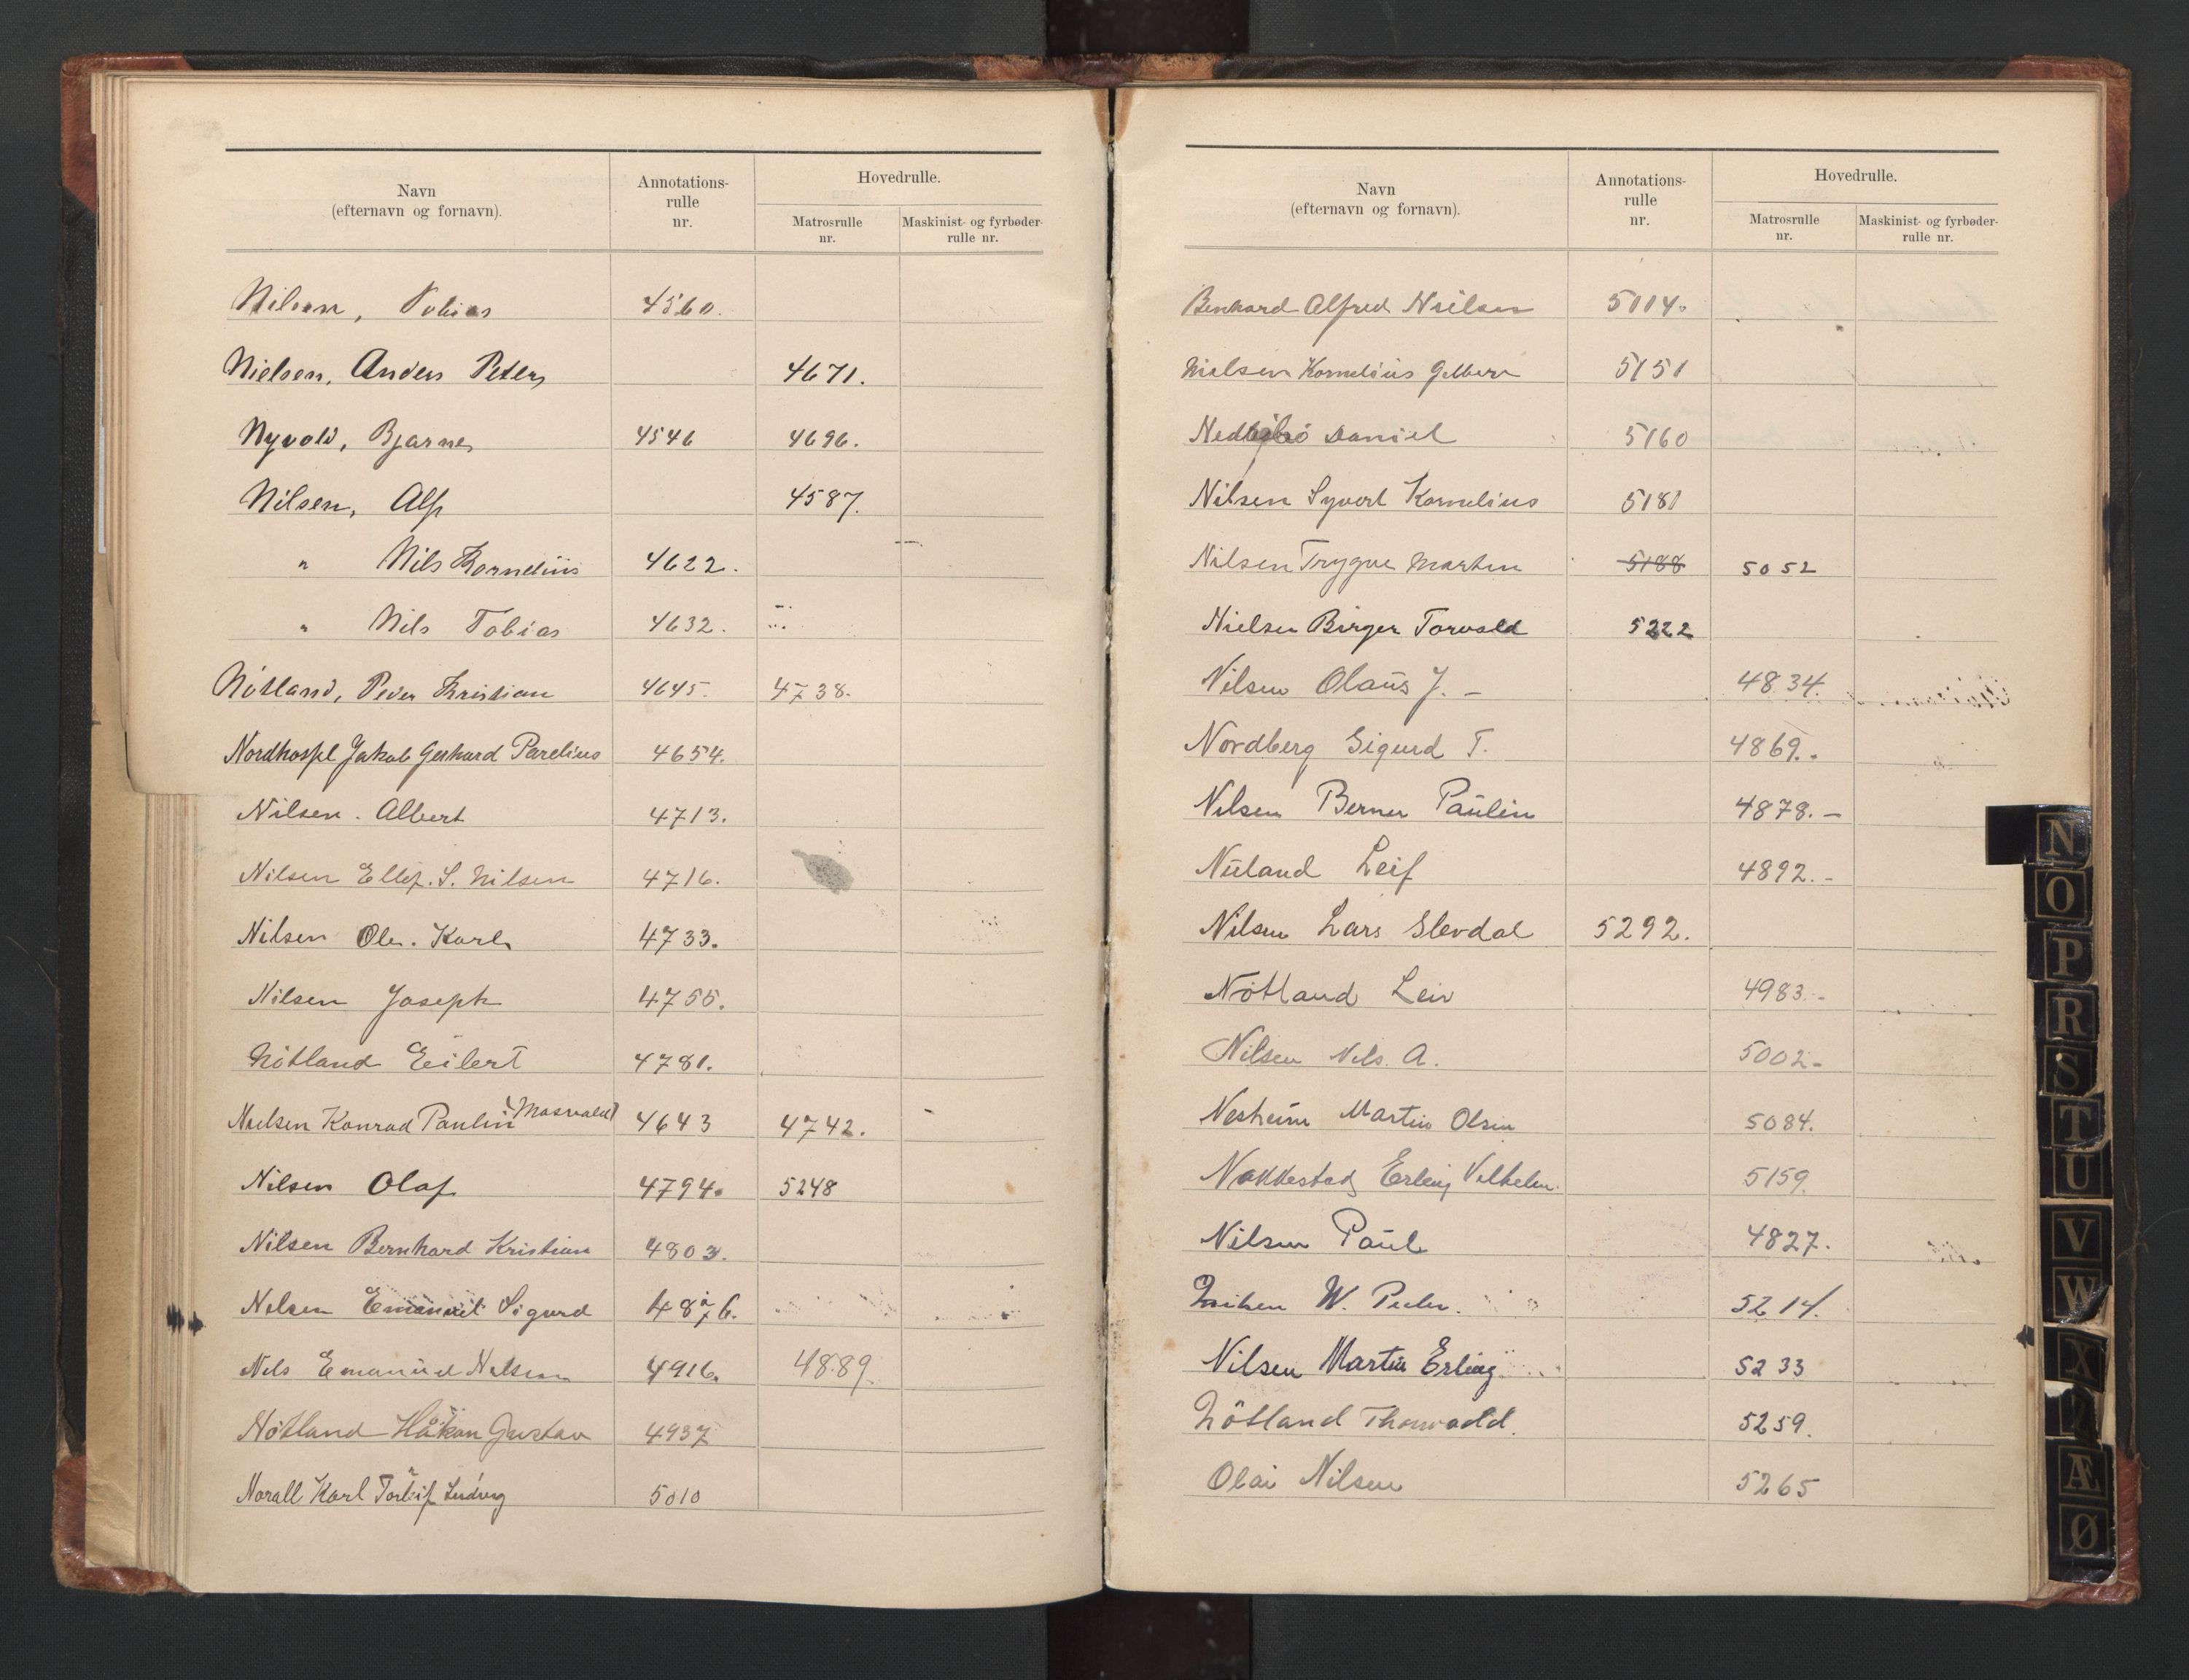 Navn
(efternavn og fornavn).
Annotations-
rulle
nr.
Hovedrulle.
Matrosrulle
nr.
Maskinist- og fyrbøder-
rulle nr.
Nilsen, Tobias 4560.
Nielsen, Anders Peter 4671.
Nyvold, Bjarne 4546 4696.
Nilsen, Alf 4587.
" Nils Kornelius 4622.
" Nils Tobias 4632.
Nötland, Peder Kristian 4645. 4738.
Jakob Gerhard Parelius 4654.
Nilsen. Albert 4713.
Nilsen Ellef. S. Nilsen 4716.
Nilsen Ole. Karl 4733.
Nilsen Joseph 4755.
Nötland Eilert 4781.
Nielsen Konrad Paulin (Mosvald) 4643 4742.
Nilsen Olaf 4794. 5248
Nilsen Bernhard Kristian 4803.
Nilsen Emanuel Sigurd
Nils Emanuel Nilsen 4916. 4889
Nötland Håkon Gustav 4937
Norall Karl Torleif Ludvig 5010
Navn
(efternavn og fornavn).
Annotations-
rulle
nr.
Hovedrulle.
Matrosrulle
nr.
Maskinist- og fyrbøder-
rulle nr.
Benhard Alfred Nielsen 5114.
Nielsen Kornelius 5151
Daniel 5160
Nilsen Syvert Kornelius 5181
Nilsen Trygve Martin 5188 5052
Nielsen Birger Torvald 5222
Nilsen Olaus J. - 4834.
Nordberg Sigurd T. 4869.
Nilsen Berner Paulin 4878. -
Nuland Leif 4892. -
Nilsen Lars Slevdal 5292.
Nötland Leiv 4983. -
Nilsen Nils. A. 5002 -
Nesheim Martin Olsen 5084.
Nakkestad Erling Vilhelm. 5159.
Nilsen Paul 4827.
W. Peder. 5214.
Nilsen Martin Erling 5233
Nötland Thorvald. 5259.
Olai Nilsen 5265
N
O
P
R
S
T
U
V
W
X
Æ
Ø